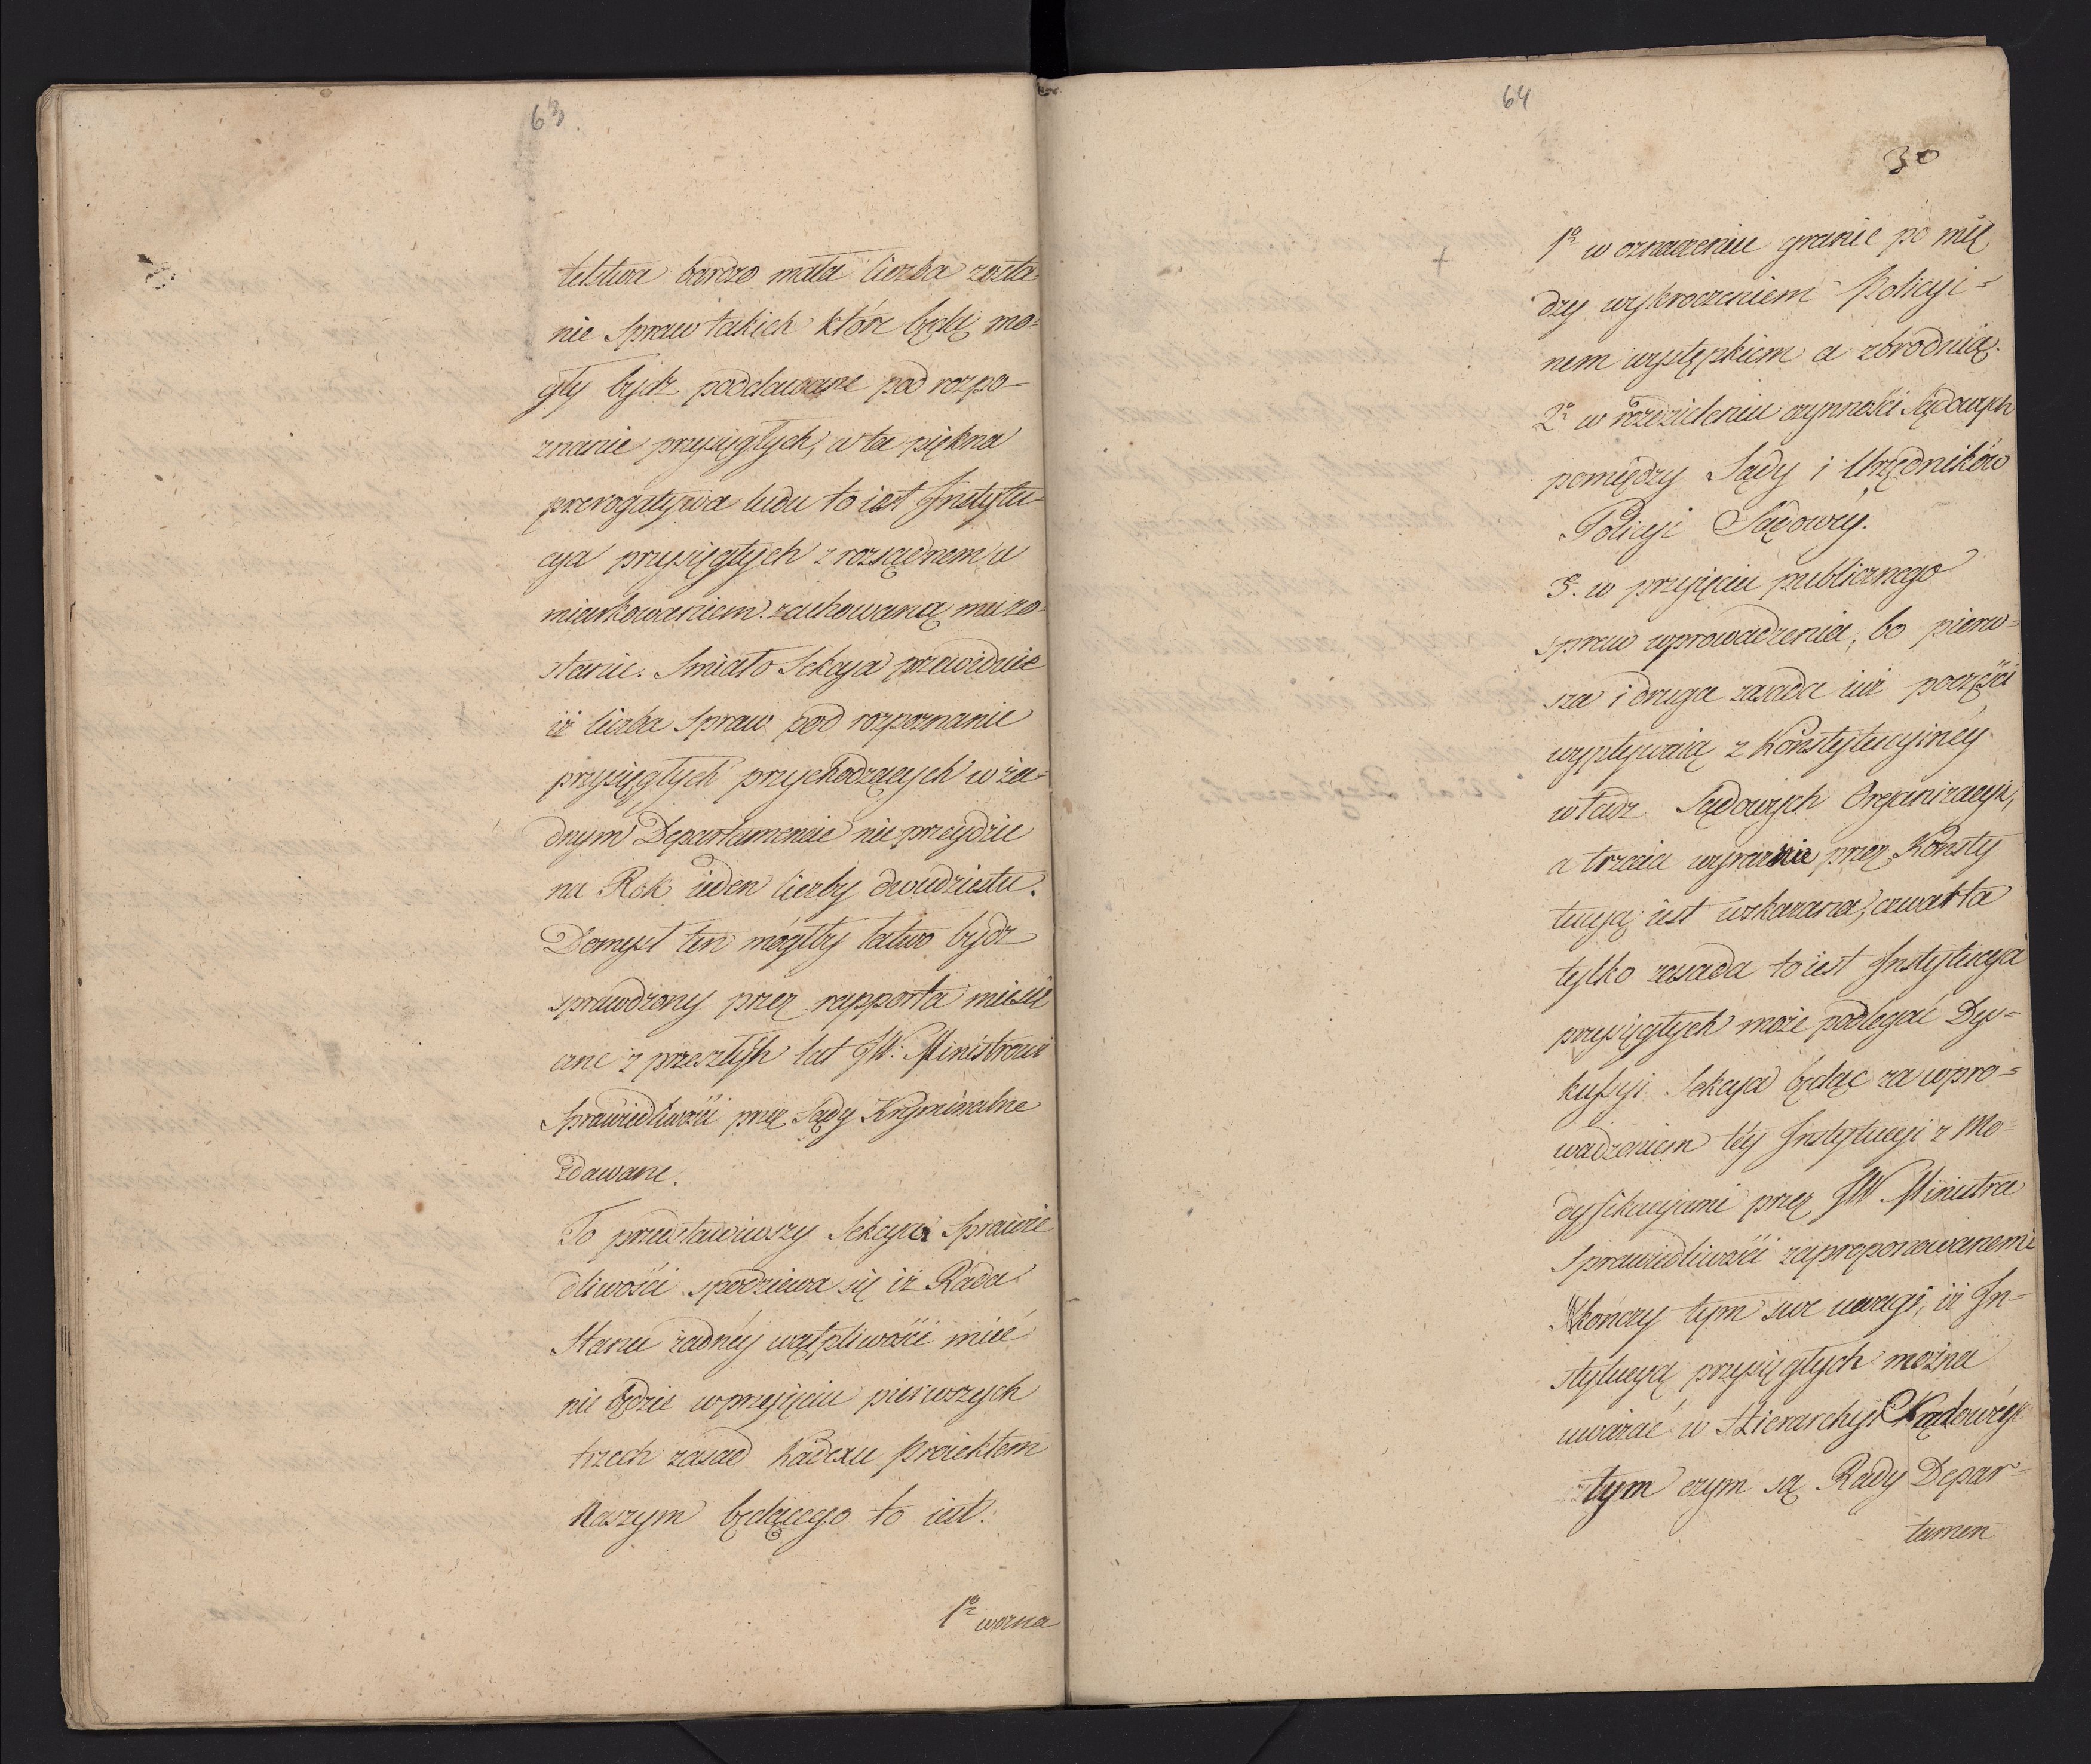 63.
telstwa bardzo mała liczba zosta
nie Spraw takich które będą mo-
gły bydź poddawane pod rozpo-
znanie przysięgłych, a ta piękna
prerogatywa ludu to iest Instytu-
cya przysięgłych z rozsądnem u
miarkowaniem zachowaną mu zo-
stanie. Smiało Sekcya przewiduie
iż liczba Spraw pod rozpoznanie
przysięgłych przychodzących w ża-
dnym Departamencie nie przeydzie
na Rok ieden liczby dwudziestu.
Domysł ten mógłby łatwo bydź
sprawdzony przez rapporta miesię
czne z przeszłych lat JW. Ministrowi
Sprawiedliwości przez Sądy Kryminalne
zdawane.
To przedstawiwszy Sekcya Sprawie
dliwości spodziewa się iż Rada
Stanu żadnéy wątpliwości mieć
nie będzie w przyięciu pierwszych
trzech zasad Kodexu Proiektem
Naszym będącego to iest.
1o w ozna
64
30
+
1o w oznaczeniu granic po mię
dzy wykroczeniem Policyi-
nem występkiem a zbrodnią.
2o w rozdzieleniu czynności Sądowych
pomiędzy Sądy i Urzędników
Policyi Sądowéy.
3. w przyięciu publicznego
spraw wprowadzenia, bo pierw-
sza i druga zasada iuż poczęści
wypływaią z Konstytucyinéy
władz Sądowych Organizacyi,
a trzecia wyraznie przez Konsty
tucyą iest wskazana, czwarta
tylko zasada to iest Instytucya
przysięgłych może podlegać Dys-
kussyi. Sekcya będąc za wpro-
wadzeniem téy Instytucyi z Mo-
dyfikacyami przez JW Ministra
Sprawiedliwości zaproponowanemi
kończy tym swe uwagi, iż In-
stytucyą przysięgłych można
uważać w Hierarchyi Sądowéy
tym czym są Rady Depar-
tamen